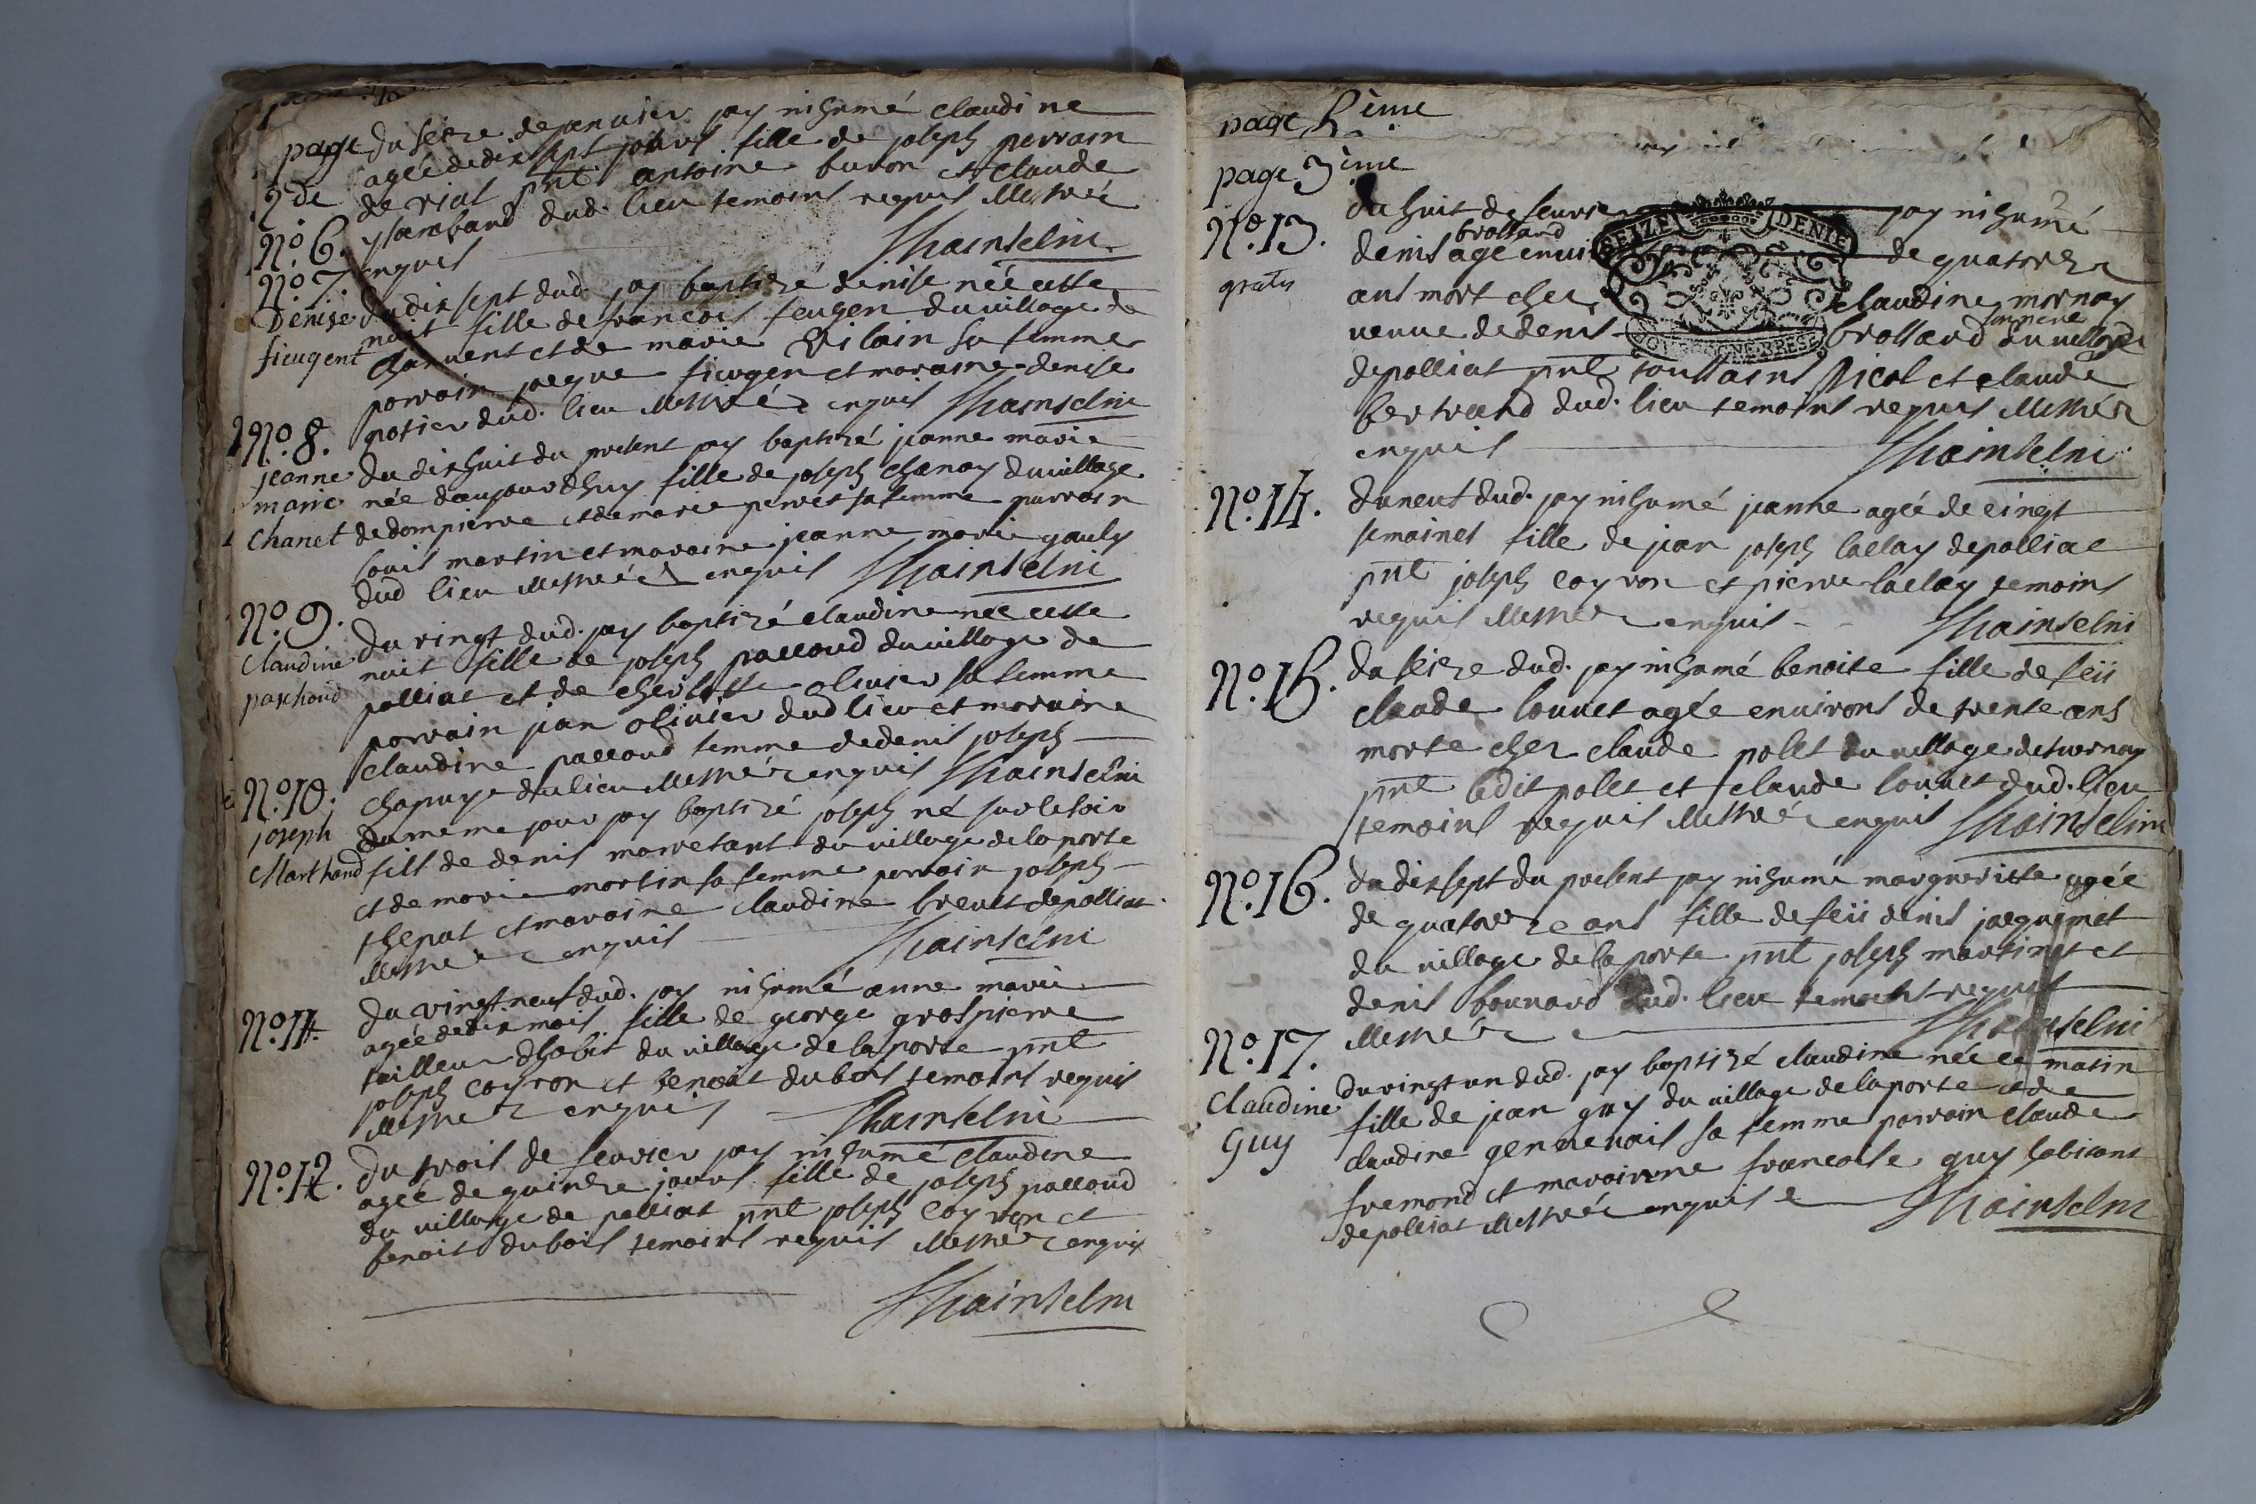 page
2de
No. 6.
du seize de janvier jay inhumé claudine
agée de dix sept jours fille de joseph perrain
de rial pnt antoine buron et claude
dud. lieu temoins requis illettrés
enquis
Thainselin
No. 7.
Denise
fieugent
du dix sept dud. jay baptizé denise née cette
nuit fille de francois feugen du village de
et de marie Vilain sa femme
parrain jacque fieugen et maraine denise
potier dud. lieu illettrés enquis Thainselin
No. 8.
jeanne
marie
Chanet
du dixhuit du present jay baptizé jeanne marie
née daujourdhuy fille de joseph chanay du village
de dompierre et de marie perret sa femme parrain
louis martin et maraine jeanne marie gauly
dud lieu illettrés enquis Thainselin
No. 9.
Claudine
paschoud
du vingt dud. jay baptizé claudine née cette
nuit fille de joseph paccoud du village de
polliat et de cherlotte olivier sa femme
parrain jian olivier dud lieu et maraine
claudine paccoud femme de denis joseph
chapuy du lieu illettrés enquis Thainselin
No. 10.
joseph
Marthand
du meme jour jay baptizé joseph né sur le soir
fils de denis marretant du village de la porte
et de marie martin sa femme parrain joseph
thepat et maraine claudine brevet de polliat.
illettrés enquis
Thainselin
No. 11.
du vingt neuf dud. jay inhumé anne marie
agée de dix mois fille de george grospierre
tailleur dhabit du village de la porte pnt
joseph coyron et benoit dubois temoins requis
illettrés enquis Thainselin
No. 12.
du trois de fevrier jay inhumé claudine
agée de quinze jours fille de joseph paccoud
du village de polliat pnt joseph coyron et
benoit dubois temoins requis illettrés enquis
Thainselin
page 2ème
page 3ème
No. 13.
gratis
du huit de fevrier jay inhumé
brolland
denis agé envi de quatorze
ans mort chez claudine mornay
sa mere
veuve de denis brolland du village
de polliat pnt toussaint Picol et claude
bertrand dud. lieu temoins requis illettrés
enquis Thainselin
SEIZE DENIE
BOURGOGNE BRESSE
No. 14.
du neuf dud. jay inhumé jeanne agée de cinqt
semaines fille de jean joseph laclay de polliac
pnt joseph coyron et pierre laclay temoins
requis illettrés enquis - - Thainselin
No. 15.
du seize dud. jay inhumé benoite fille de feii
claude louvet agée environs de trente ans
morte chez claude polet du village de turnay
pnt ledit polet et claude louvet dud. lieu
temoins requis illettrés enquis Thainselin
No. 16.
du dix sept du present jay inhumé margueritte agée
de quatorze ans fille de feii denis jacquemet
du village de la porte pnt joseph martinet et
denis bounard dud. lieu temoins requis
illettrés Thainselin
No. 17.
Claudine
Guy
du vingt un dud. jay baptizé claudine née ce matin
fille de jean guy du village de la porte et de
claudine germenais sa femme parrain claude
fremond et maraine francoise guy habitant
de polliat illettrés enquis Thainselin